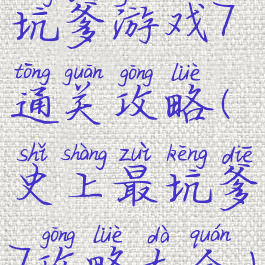 坑爹游戏7
tōng guān gōng lüè
通关攻略(
shǐ shàng zuì kēng diē
史上最坑爹
gōng lüè dà quán
7攻略大全)